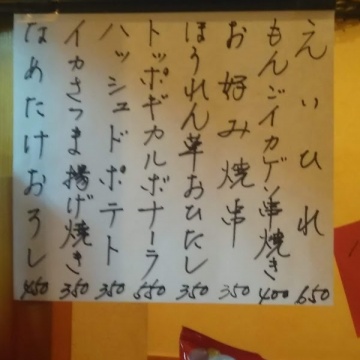 えいひれ 650
もんごイカゲソ串焼き 400
お好み焼串 350
ほうれん草おひたし 350
トッポギカルボナーラ 550
ハッシュドポテト 350
イカさつま揚げ焼き 350
なめたけおろし 450